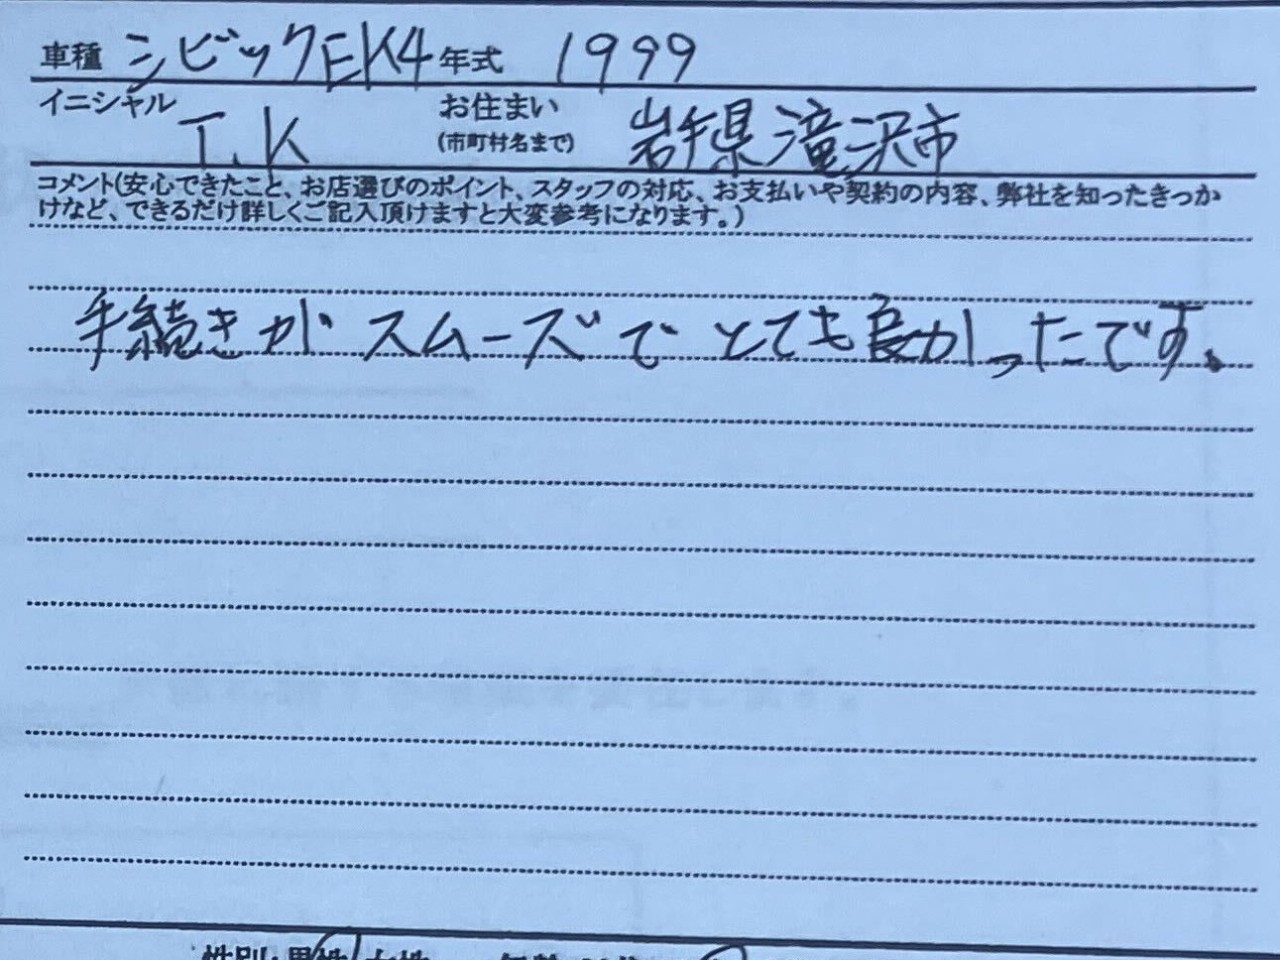 車種 シビックEK4 年式 1999
イニシャル T.K お住まい(市町村名まで) 岩手県滝沢市
コメント(安心できたこと、お店選びのポイント、スタッフの対応、お支払いや契約の内容、弊社を知ったきっか
けなど、できるだけ詳しくご記入頂けますと大変参考になります。)
手続きがスムーズでとても良かったです。
性別:男性/女性